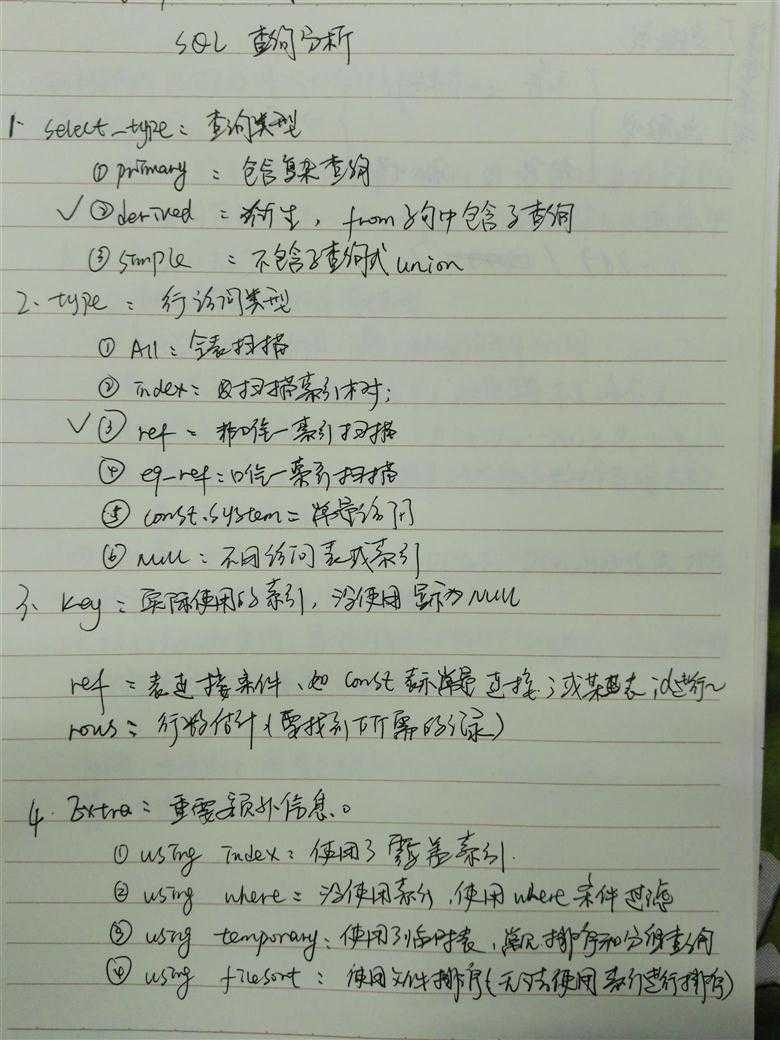 SQL 查询分析
1. select_type: 查询类型
① primary : 包含复杂查询
✓ ② derived : 衍生, from子句中包含子查询
③ simple : 不包含子查询或union
2. type : 行访问类型
① All : 全表扫描
② index : 只扫描索引树;
✓ ③ ref : 非唯一索引扫描
④ eq_ref : 唯一索引扫描
⑤ const.system : 常量访问
⑥ null : 不用访问表或索引
3. key : 实际使用的索引, 没使用显示为null
ref : 表连接条件、如const表示常量连接;或某些表id进行~
rows : 行数估计(要找到所需的记录)
4. Extra : 重要额外信息。
① using index : 使用了覆盖索引.
② using where : 没使用索引, 使用where条件过滤
③ using temporary : 使用到临时表, 常见排序和分组查询
④ using filesort : 使用文件排序(无法使用索引进行排序)